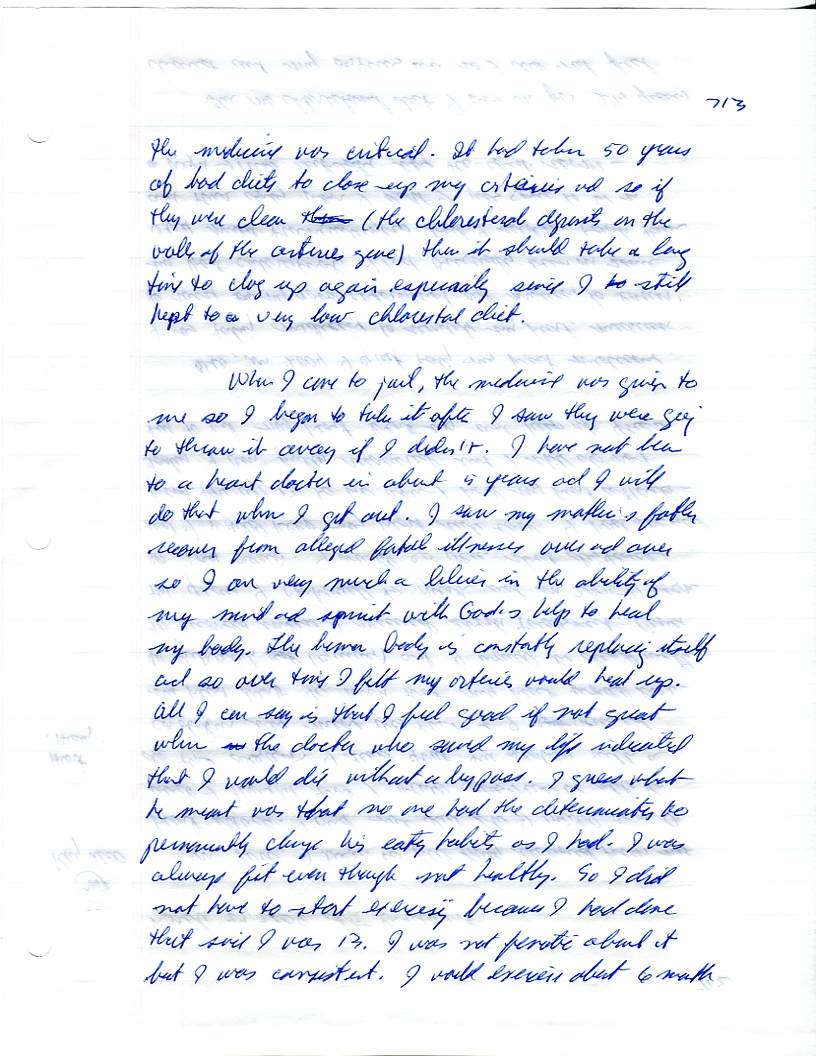 713
the medicine was critical. It had taken 50 years
of bad diets to close up my arteries ad so if
they were clean (the chloresterol deposits on the
walls of the arteries gone) then it should take a long
time to clog up again especially since I still
kept to a very low chlorestal diet.
When I came to jail, the medicine was given to
me so I began to take it after I saw they were going
to throw it away if I didn't. I have not been
to a heart doctor in about 5 years ad I will
do that when I get out. I saw my mother's father
recover from alleged fatal illnesses over ad over
so I am very much a believer in the ability of
my mind ad spirit with God's help to heal
my body. The human body is constantly replacing itself
ad so over time I felt my arteries would heal up.
All I can say is that I feel good if not great
when the doctor who saved my life indicated
that I would die without a bypass. I guess what
he meant was that no one had the determination to
permanently change his eating habits as I had. I was
always fit even though not healthy. So I did
not have to start exercising because I had done
that since I was 13. I was not fanatic about it
but I was consistent. I would exercise about 6 months